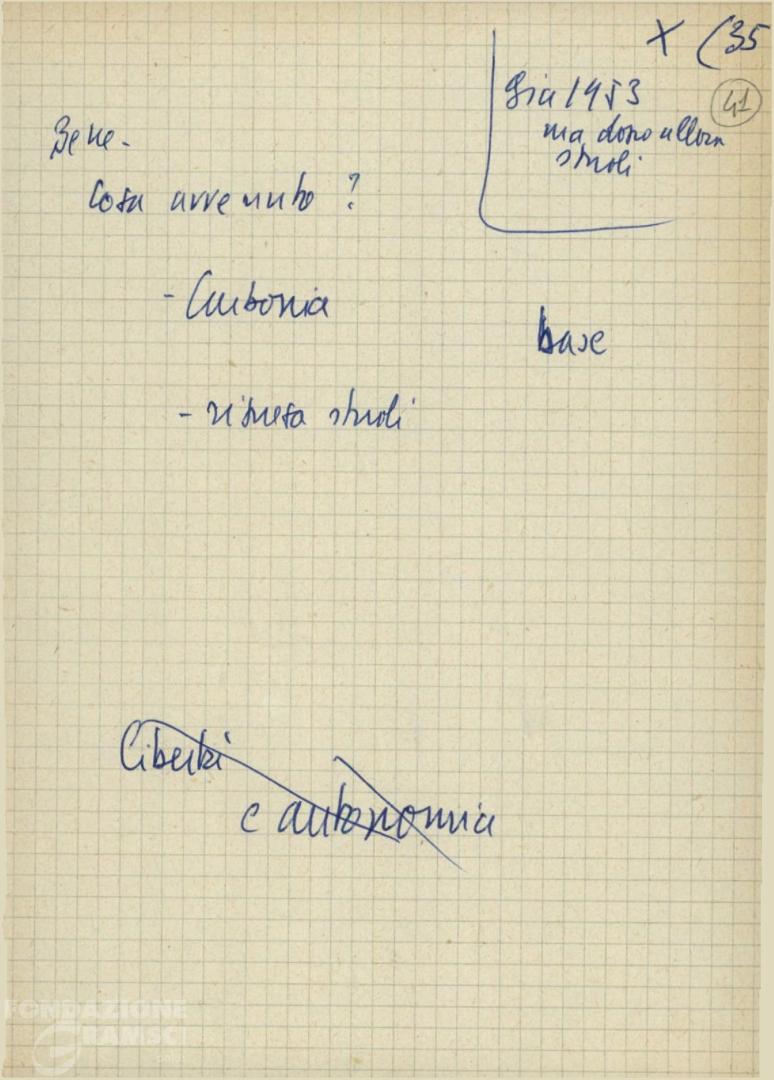 X (35
41
Già 1953
ma dopo allora
studi
Bene.
Cosa avvenuto?
- Carbonia
base
- ripresa studi
Libertà
e autonomia
FONDAZIONE
GRAMSCI